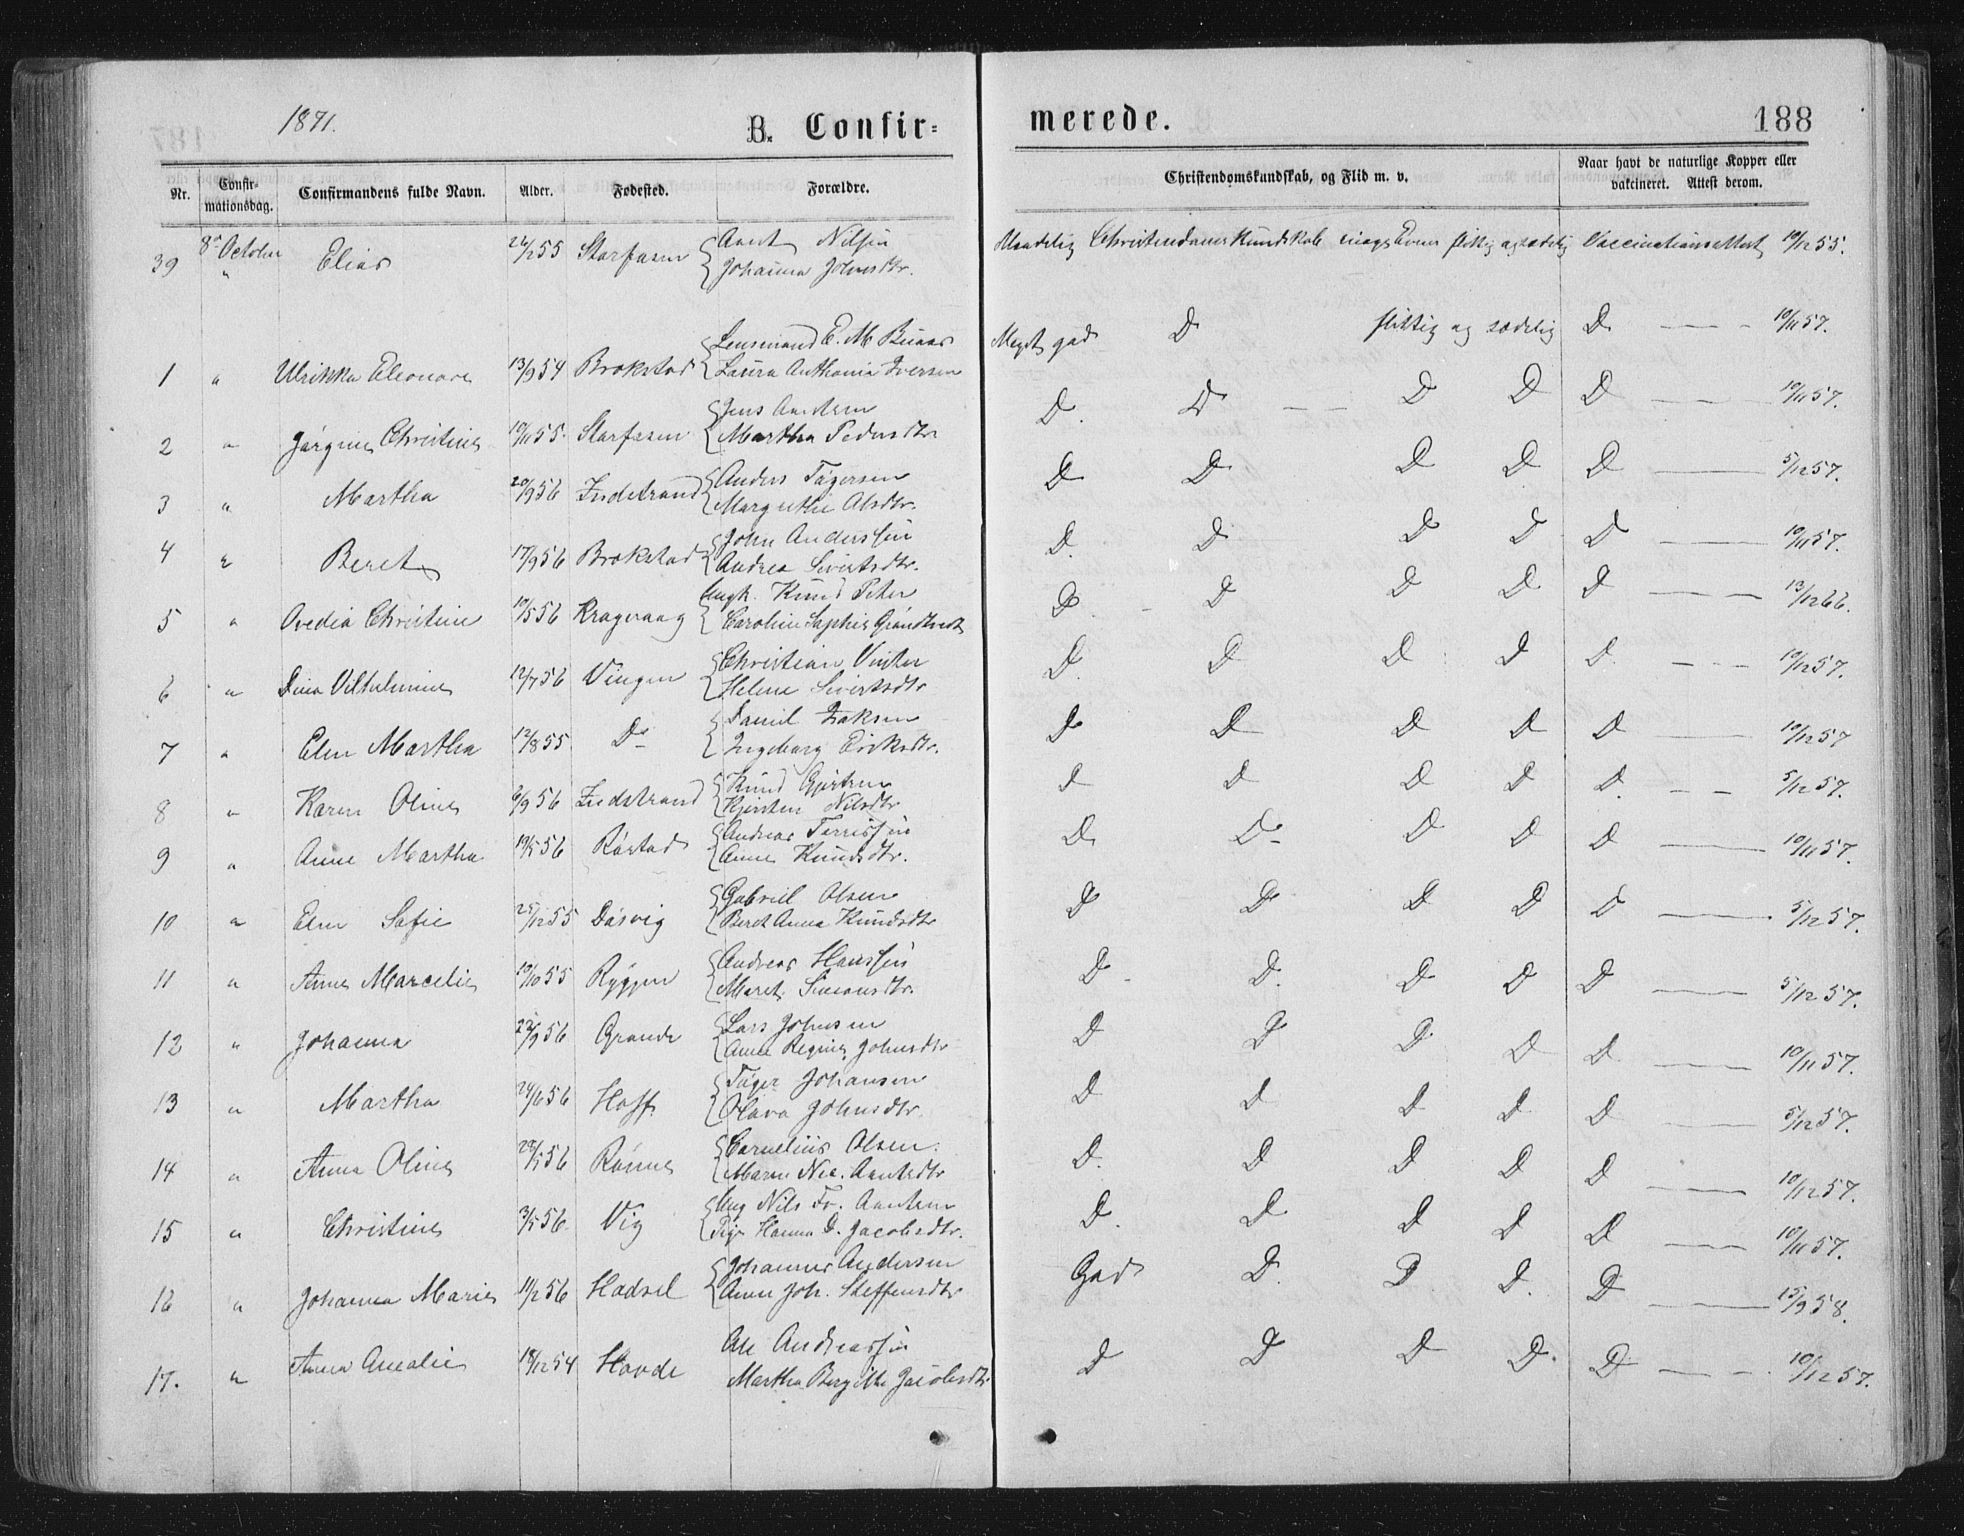 1871.
B. Confir= merede.
188
Nr.
Confir-
mationsdag.
Confirmandens fulde Navn.
Alder.
Fødested.
Forældre.
Christendomskundskab, og Flid m. v.
Naar havt de naturlige Kopper eller
vakcineret. Attest derom.
39 8de October Elias 22/2 55 Storfosen Arnt Nilsen Maadelig Christendomskundskab flittig og sædelig Vaccinationsattest 10/12 55.
" Johanna Johnsdtr.
Lensmand E. M. Meget god D flittig og sædelig D — 10/11 57.
1 " Ulrikka Eleonora 13/9 54 Brokstad Laura Anthonia Iversen
2 " Jørgine Christine 10/11 55. Storfosen Jens Arntsen D. D — — D D D — 10/11 57.
Martha Pedersdtr.
3 " Martha 20/9 56 Indstrand Anders Tøgersen D D D D D — 5/12 57.
Margrethe Olsdtr.
4 " Beret 17/9 56 Brokstad John Anderssen D. D D D D — 10/11 57.
Andrea Sivertsdtr.
5 " Ovedia Christine 10/5 56 Kragvaag Ungk. Knud Peter D. D D D D — 13/12 66.
Caroline Sophie
6 " Dina Vilhelmine 12/7 56 Vingen Christian Vinter D. D D D D — 10/12 57.
Helene Sivertsdtr
7 " Elen Martha 12/8 55 Do Daniel Isaksen D D D D D — 10/12 57
Ingeborg Eriksdtr.
8 " Karen Oline 6/9 56 Indstrand Knud Gjertsen D D D D D. — 5/12 57.
Kjersten Nilsdtr
9 " Anne Martha 19/5 56 Røstad Andreas D D D D D — 10/11 57.
Anne Knudsdtr.
10 " Elen Sofie 25/12 55 Døsvig Gabriel Olsen D D D D D — 5/12 57.
Beret Anna Knudsdtr
11 " Anne Marcelie 10/10 55 Ryggen Andreas Hanssen D D. D D D — 5/12 57.
Maret Simonsdtr.
12 " Johanna 22/9 56 Grande Lars Johnsen D D D D D — 10/11 57.
Anne Regine Johnsdtr
13 " Martha 24/6 56 Hoff Tøger Johansen D D D D D — 5/12 57.
Olava Johnsdtr.
14 " Anna Oline 28/5 56 Rønne Cornelius Olsen. D. D D D D — 10/12 57.
Maren Nic. Arntsdtr
15 " Christine 3/5 56 Vig Ung Nils Fr. Arntsen D. D D D D — 10/11 57.
Pige Hanna D. Jacobsdtr.
16 " Johanna Marie 11/2 56 Hodsel Johannes Andersen God D. D D. D — 15/9 58.
Anne Joh. Steffensdtr
17. " Anna Amalie 18/12 54 Hovde Ole Andreassen D D D D. D — 10/12 57.
Martha Bergitte Jacobsdtr.